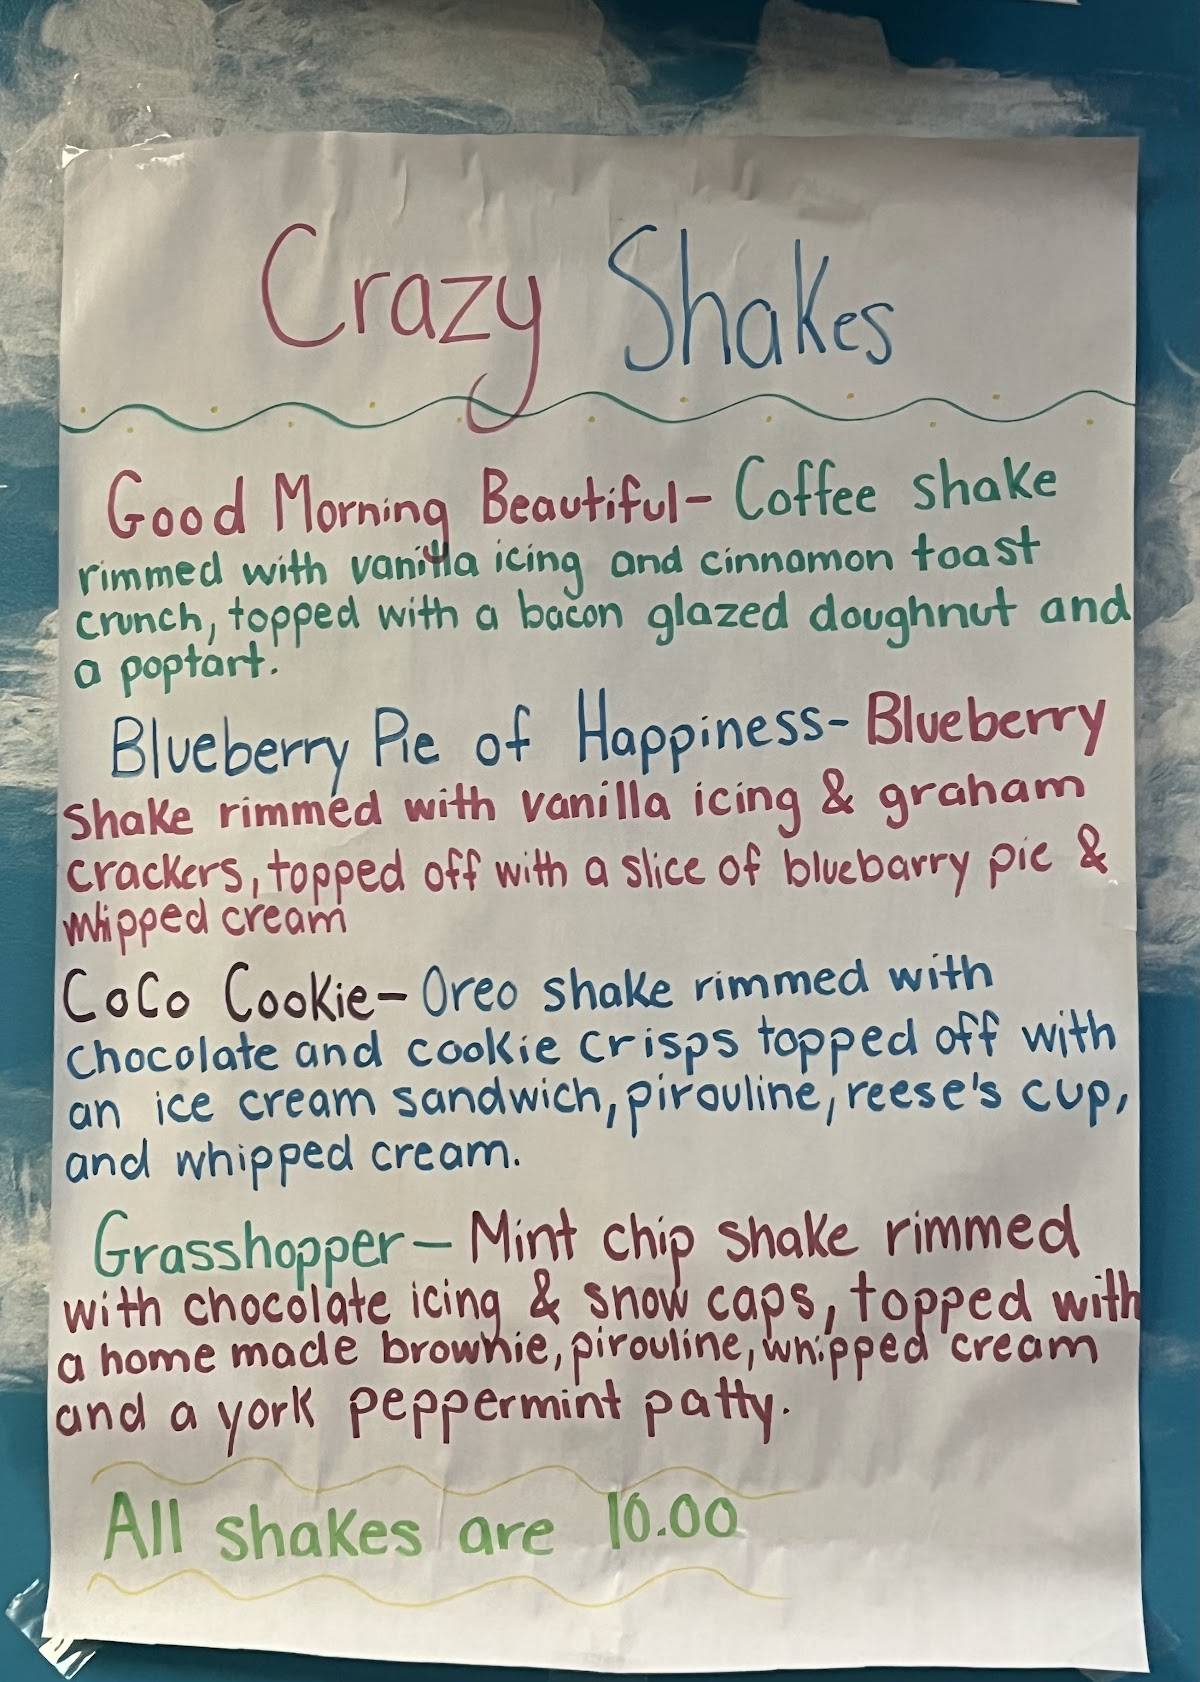 Crazy Shakes
Good Morning Beautiful- Coffee shake
rimmed with vanilla icing and cinnamon toast
crunch, topped with a bacon glazed doughnut and
a poptart.
Blueberry Pie of Happiness- Blueberry
Shake rimmed with vanilla icing & graham
crackers, topped off with a slice of bluebarry pie &
whipped cream
CoCo Cookie- Oreo shake rimmed with
chocolate and cookie crisps topped off with
an ice cream sandwich, pirouline, reese's cup,
and whipped cream.
Grasshopper- Mint chip shake rimmed
with chocolate icing & snow caps, topped with
a home made brownie, pirouline, whipped cream
and a york peppermint patty.
All shakes are 10.00